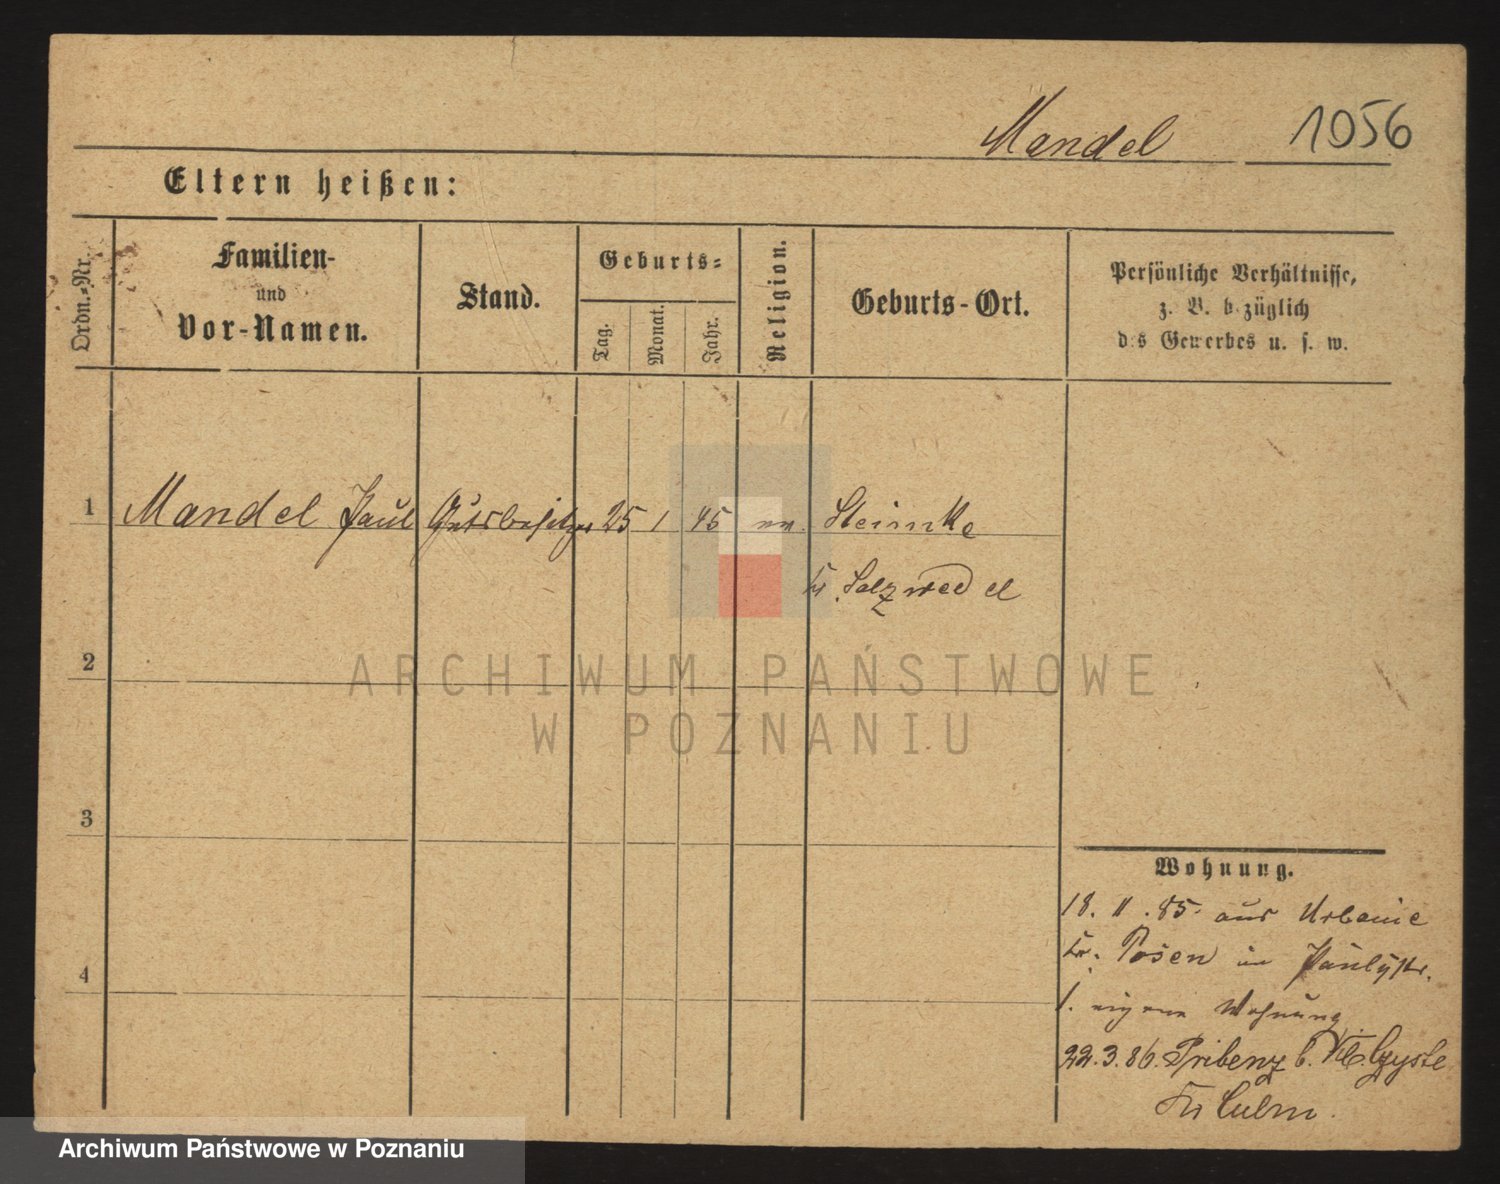 Mandel 1056
Eltern heißen:
Ordn.-Nr.
Familien-
und
Vor-Namen.
Stand.
Geburts-
Tag.
Monat.
Jahr.
Religion.
Geburts-Ort.
Persönliche Verhältnisse,
z. B. bezüglich
des Gewerbes u. s. w.
1 Mandel Paul Gutsbesitzer 25 1 45 ev. Steimke
Kr. Salzwedel
2
ARCHIWUM PAŃSTWOWE
W POZNANIU
3
4
Wohnung.
18. 11. 85. aus Urbanie
Kr. Posen in Paulystr.
1. eigene Wohnung
22.3.86. Pribenz b. Kl. Czyste
Kr Culm.
Archiwum Państwowe w Poznaniu